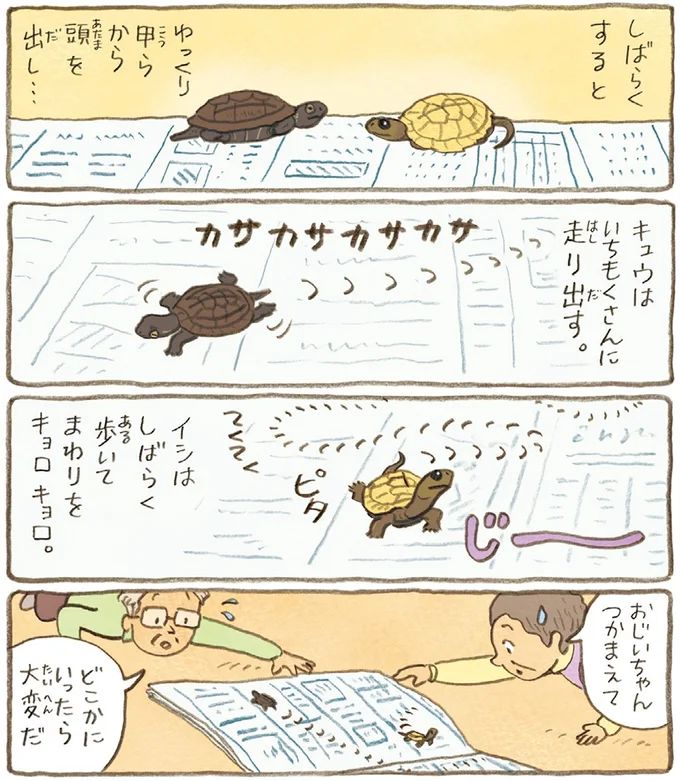 しばらく
すると
ゆっくり
甲ら
から
頭を
出し…
キュウは
いちもくさんに
走り出す。
カサカサカサカサ
ピタ
じーー
てくてく
イシは
しばらく
歩いて
まわりを
キョロキョロ。
おじいちゃん
つかまえて
どこかに
いったら
大変だ